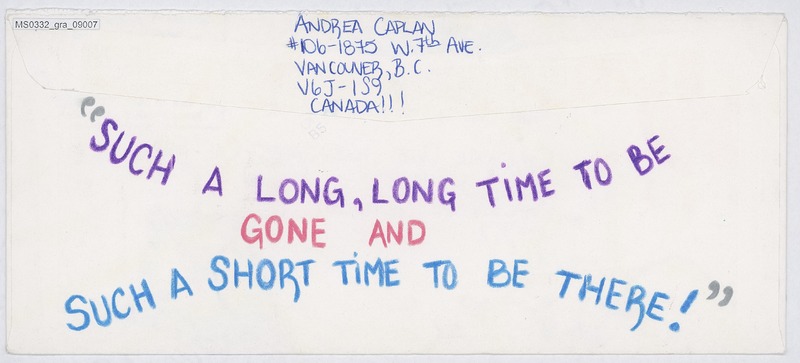 MS0332_gra_09007
ANDREA CAPLAN
#106-1875 W. 7th AVE.
VANCOUVER, B.C.
V6J-1S9
CANADA!!!
"SUCH A LONG, LONG TIME TO BE
GONE AND
SUCH A SHORT TIME TO BE THERE!"